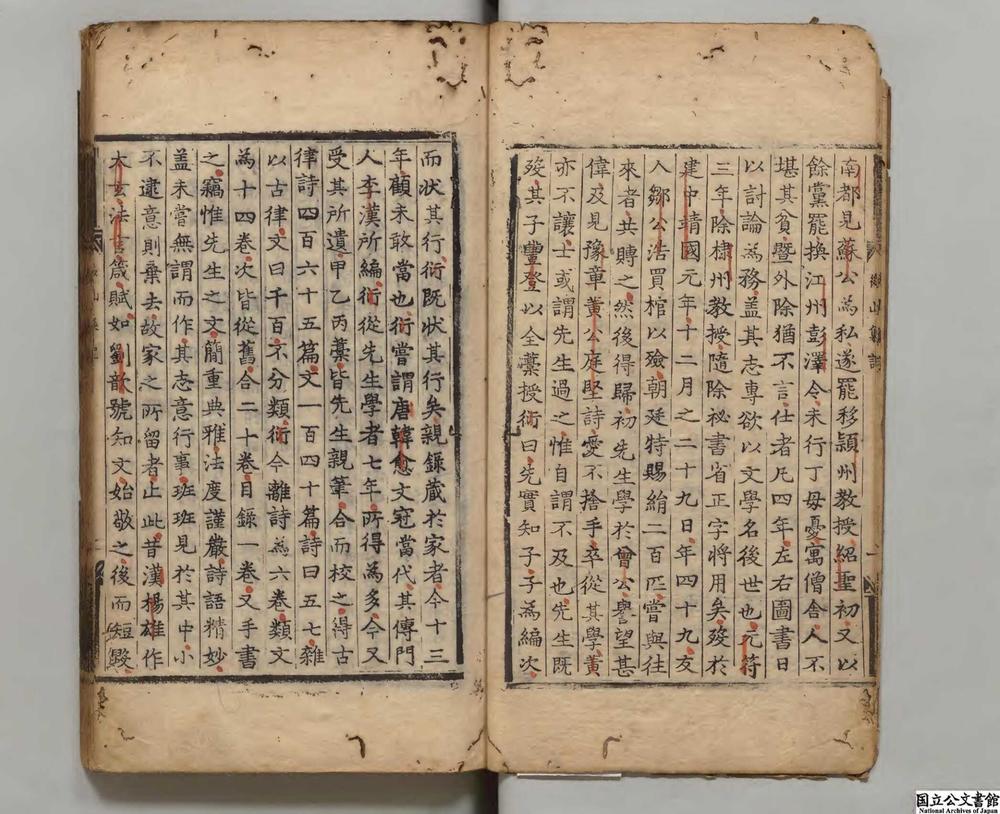 南都見蘇公為私遂罷移潁州教授紹聖初又以
餘黨罷換江州彭澤令未行丁母憂寓僧舎人不
堪其貧曁外除猶不言仕者凡四年左右圖書日
以討論為務盖其志專欲以文學名後世也元符
三年除棣州教授隨除祕書省正字將用矣歿於
建中靖國元年十二月之二十九日年四十九友
人鄒公浩買棺以殮朝廷特賜絹二百匹嘗與往
來者共賻之然後得歸初先生學於曾公譽望甚
偉及見豫章黄公庭堅詩愛不捨手卒從其學黄
亦不讓士或謂先生過之惟自謂不及也先生既
歿其子豐登以全藁授衍曰先實知子子為編次
而狀其行衍既狀其行矣親錄蔵於家者今十三
年顧未敢當也衍嘗謂唐韓愈文冠當代其傳門
人李漢所編衍從先生學者七年所得為多今又
受其所遺甲乙丙藁皆先生親筆合而校之得古
律詩四百六十五篇文一百四十篇詩曰五七雜
以古律文曰千百不分類衍今離詩為六卷類文
為十四卷次皆從舊合二十卷目錄一卷又手書
之竊惟先生之文簡重典雅法度謹嚴詩語精妙
盖未嘗無謂而作其志意行事班班見於其中小
不逮意則棄去故家之所留者止此昔漢楊雄作
太玄法言箴賦如劉歆號知文始敬之後而短毁
国立公文書館
National Archives of Japan